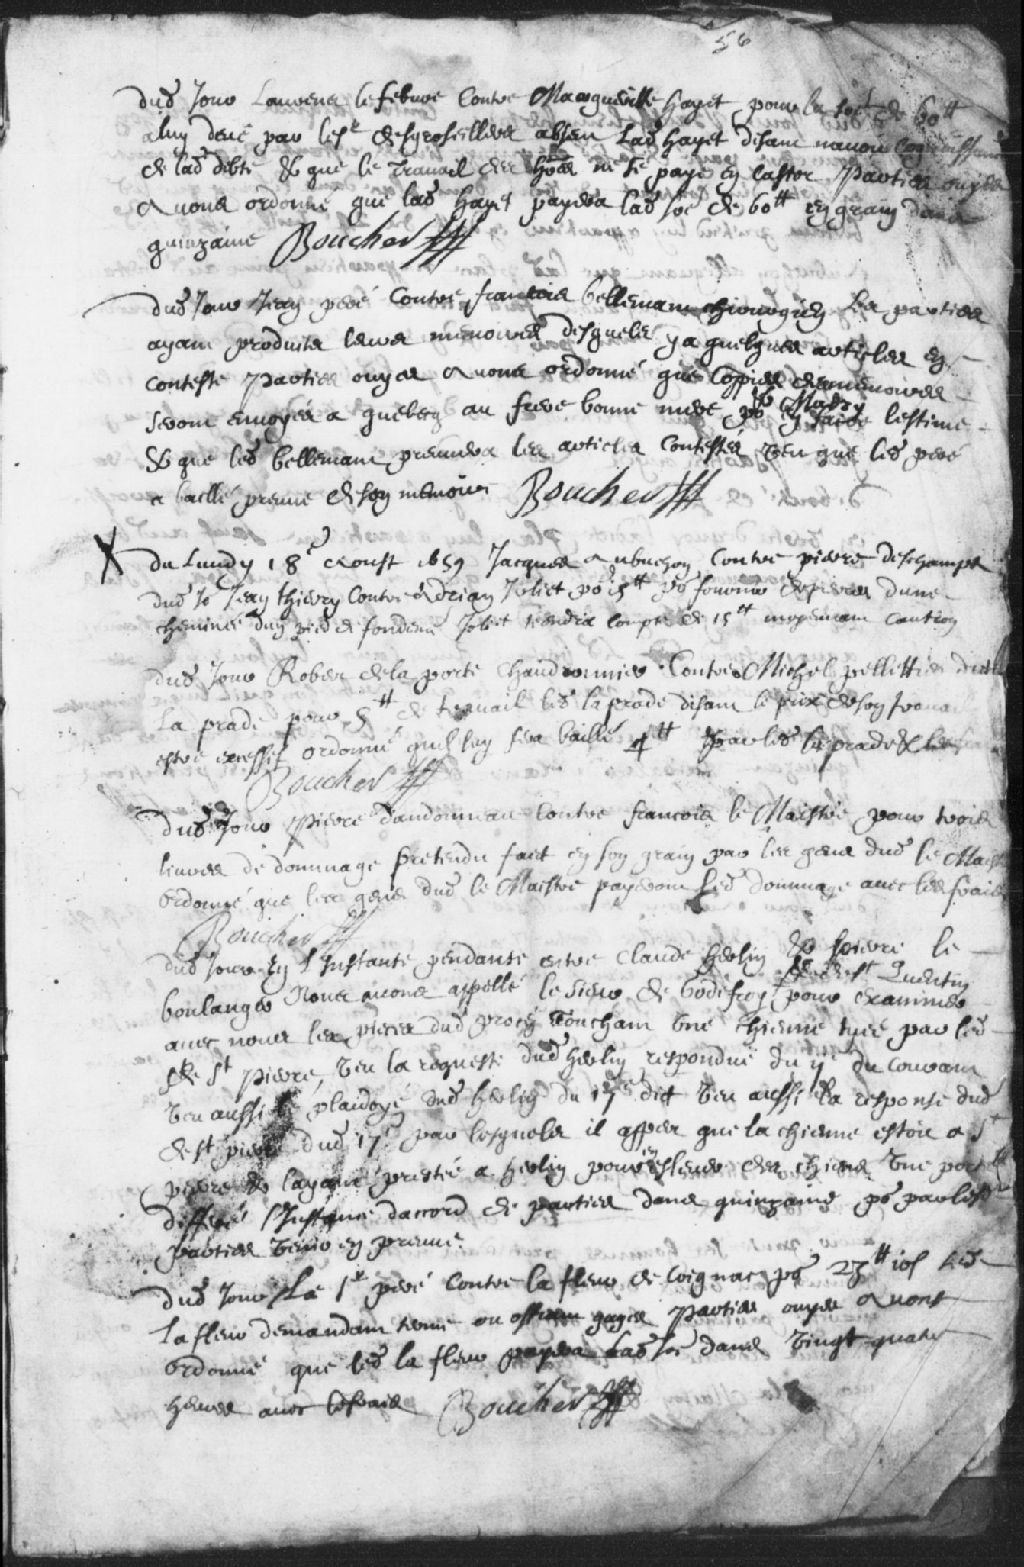 56
dud Jour Laurens lefebure Contre Marguerite hayet pour la so͞e de 60tt
a luy deue par le sr desgroseilliers absen Lad hayet disant navoir Cognoissance
de lad debte & que le travail des ho͞es ne se paye en Castor Parties ouyes
Avons ordonné que lad hayet payera lad so͞e de 60tt en grain dans
quinzaine Boucher
dud Jour Jean peré Contre francois bellemant chirurgien Les parties
ayant produits leurs memoires desquels y a quelques articles en
conteste Parties ouyes Avons ordonné que Coppies des memoires
seront envoyées a quebecq au frere bonne mere & Madry po en faire lestime
& que led bellemant prouvera les articles Contestés Veu que led peré
a baillé preuve de son memoire Boucher
X du Lundy 18e Aoust 1659 Jacques Aubuchon Contre pierre deschamps
dud Jo Jean thierry Contre Adrian Joliet po 15tt po fourniro de pierres dune
cheminée dun pied de fondeme Joliet tiendra compte de 15tt moyennant caution
dud Jour Rober de la porte Chaudronnier Contre Michel pellettier dud
La prade pour 5tt de travail led la prade disant le prix de son travail
estre excessif ordonné quil luy sera baillé 4tt par led la prade &
Boucher
dud Jour Pierre dandonneau Contre francois le Maistre pour trois
livres de dommage pretendu fait en son grain par les gens dud le Maistre
Ordonné que les gens dud le Maistre payeront led dommage avec les frais
Boucher
dud Jour En l Instante pendante entre Claude herlin & pierre le
boulanger sr de st Quentin Nous avons appellé le sieur de Godefroy pour examiner
avec nous les pieces dud procez Touchant Une chienne tuée par led
sr de St Pierre, Veu la requeste dud herlin respondue du 11 du courant
Veu aussi le plaidoyé dud herlin du 17e dict Veu aussi la response dud
de St pierre dud 17e par lesquels il apper que la chienne estoit a St
pierre & layant prestée a herlin pour en eslever des chiens Une portée
differé l Instance daccord de parties dans quinzaine po par lesd
parties Venir en preuve
dud Jour Le sr peré Contre la fleur de Coignac po 23tt 10s Led
La fleur demandant terme ou offrant gages Parties ouyes Avons
Ordonné que led la fleur payera Lad so͞e dans Vingt quatre
heures avec les frais Boucher